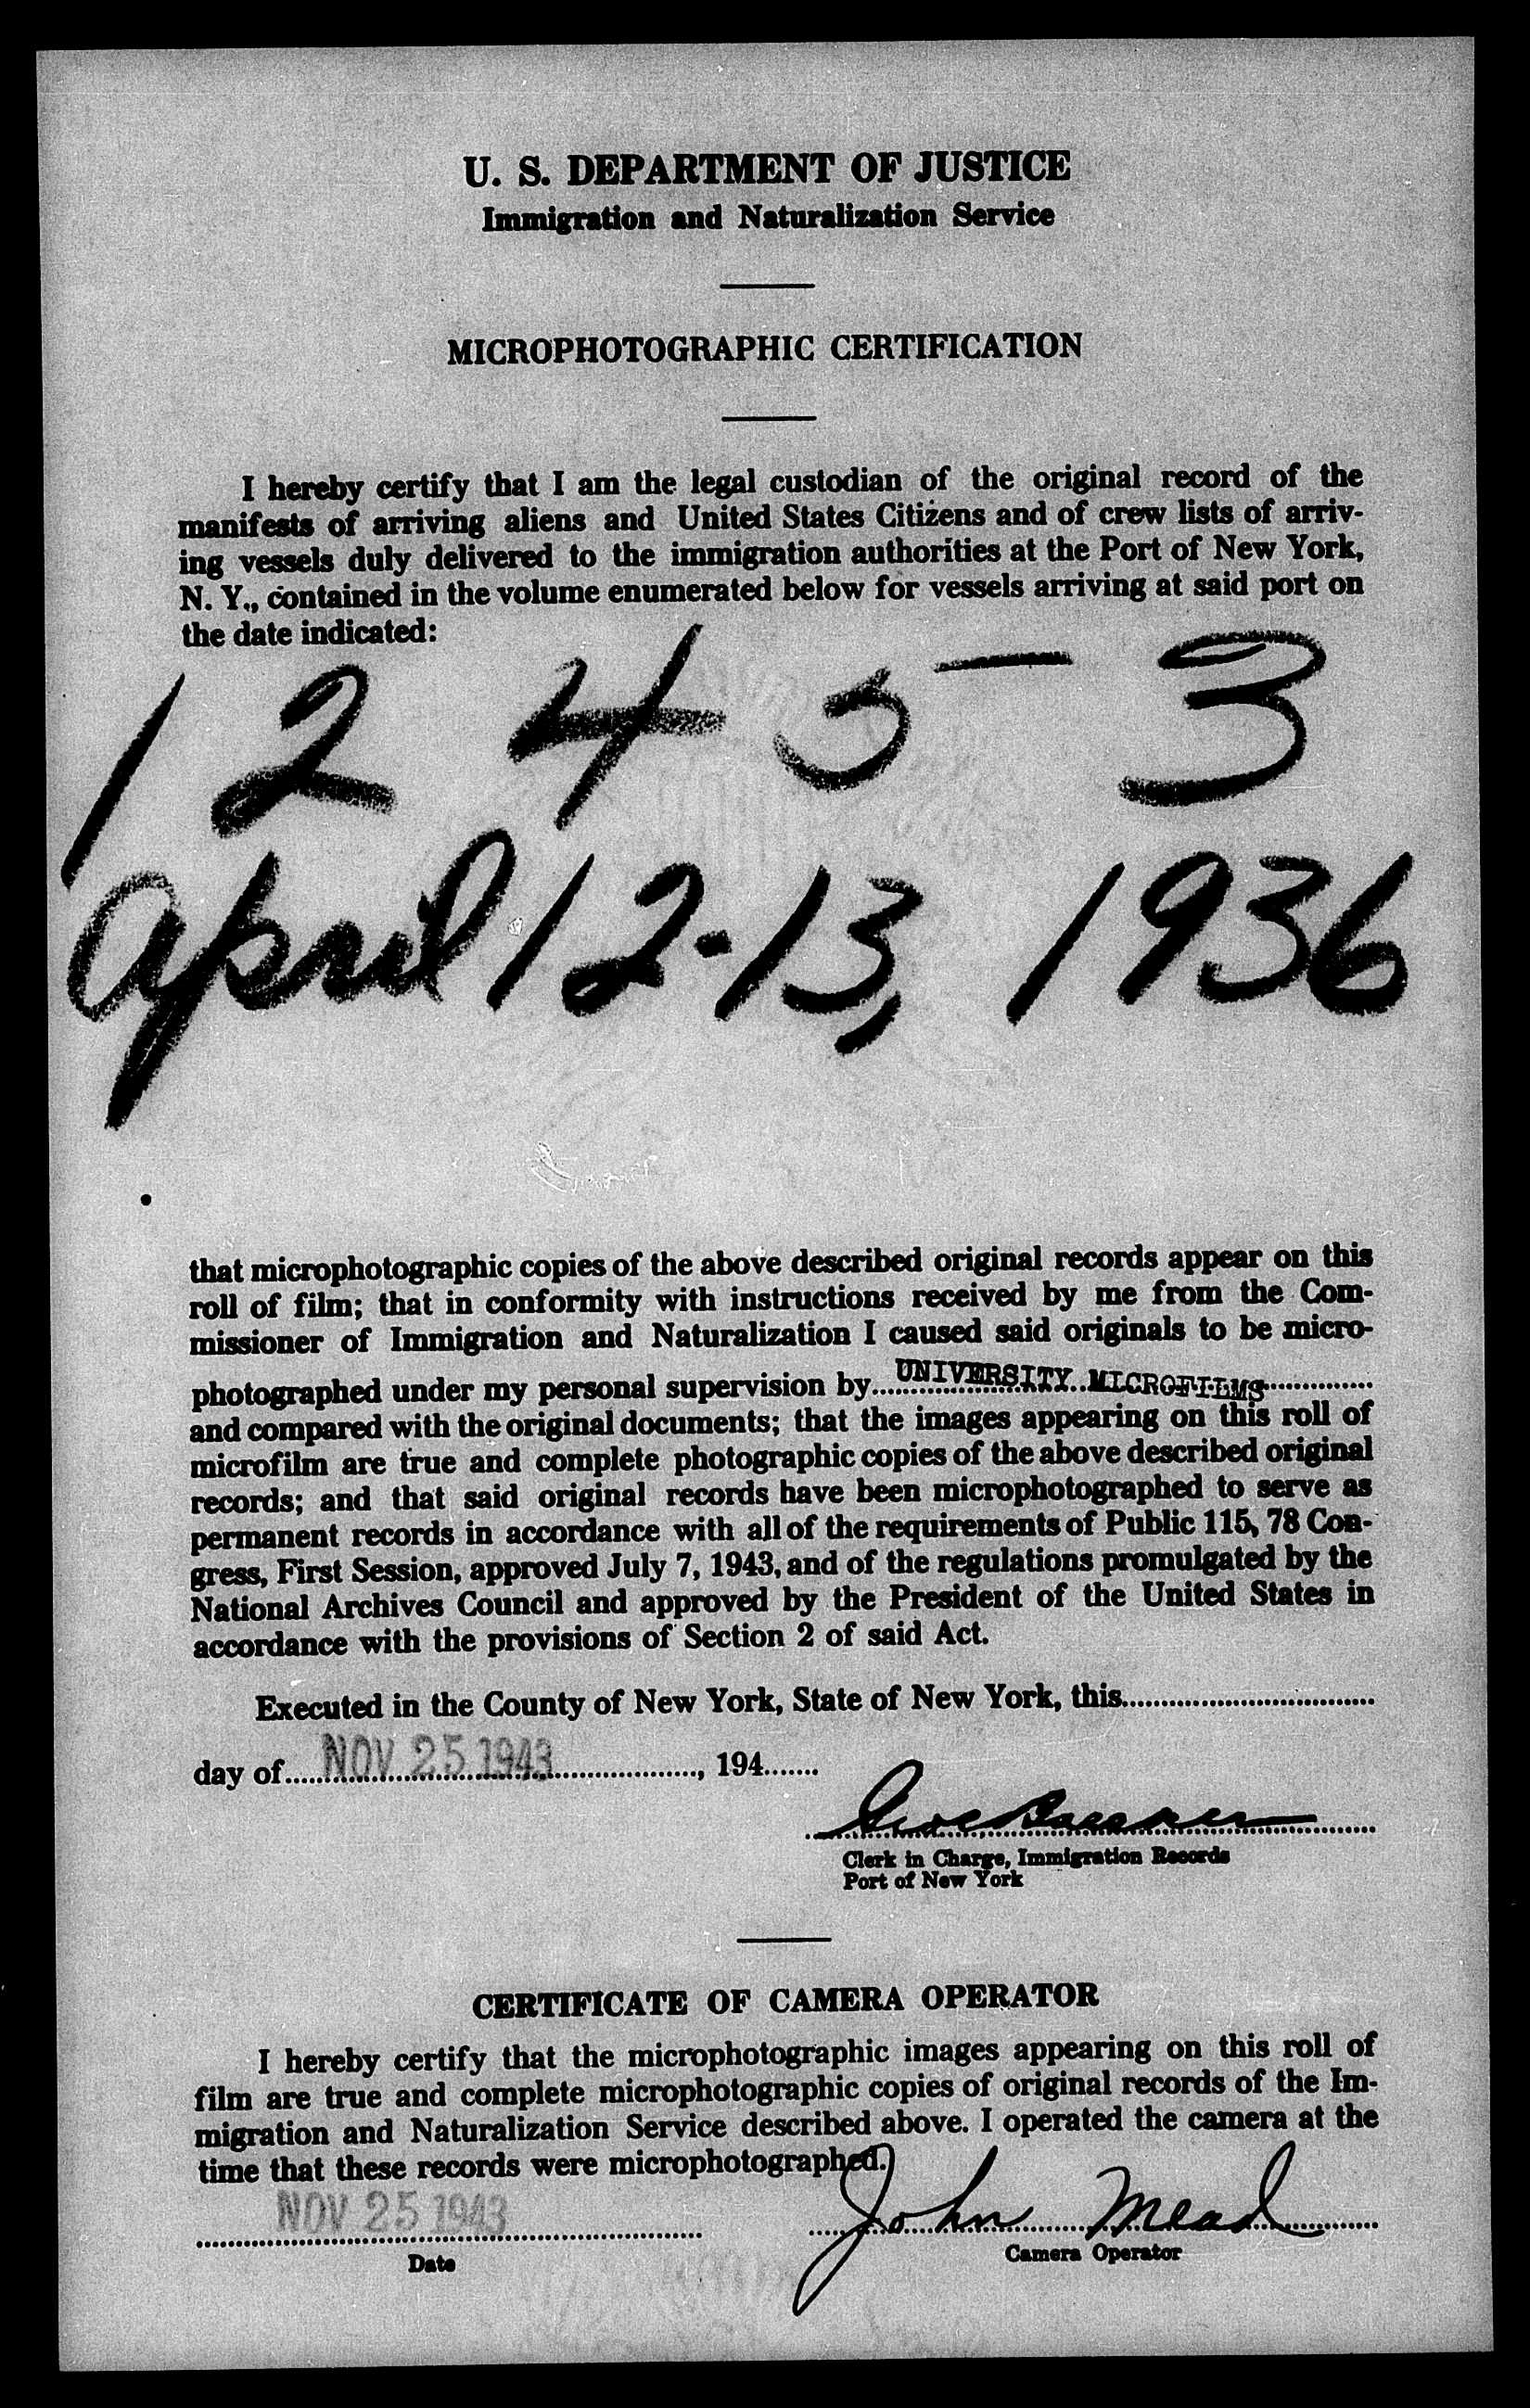 U. S. DEPARTMENT OF JUSTICE
Immigration and Naturalization Service
MICROPHOTOGRAPHIC CERTIFICATION
I hereby certify that I am the legal custodian of the original record of the
manifests of arriving aliens and United States Citizens and of crew lists of arriv-
ing vessels duly delivered to the immigration authorities at the Port of New York,
N. Y., contained in the volume enumerated below for vessels arriving at said port on
the date indicated:
12453
April 12-13, 1936
that microphotographic copies of the above described original records appear on this
roll of film; that in conformity with instructions received by me from the Com-
missioner of Immigration and Naturalization I caused said originals to be micro-
photographed under my personal supervision by UNIVERSITY MICROFILMS
and compared with the original documents; that the images appearing on this roll of
microfilm are true and complete photographic copies of the above described original
records; and that said original records have been microphotographed to serve as
permanent records in accordance with all of the requirements of Public 115, 78 Con-
gress, First Session, approved July 7, 1943, and of the regulations promulgated by the
National Archives Council and approved by the President of the United States in
accordance with the provisions of Section 2 of said Act.
Executed in the County of New York, State of New York, this
day of NOV 25 1943, 194
Clerk in Charge, Immigration Records
Port of New York
CERTIFICATE OF CAMERA OPERATOR
I hereby certify that the microphotographic images appearing on this roll of
film are true and complete microphotographic copies of original records of the Im-
migration and Naturalization Service described above. I operated the camera at the
time that these records were microphotographed.
NOV 25 1943 John Mead
Date Camera Operator